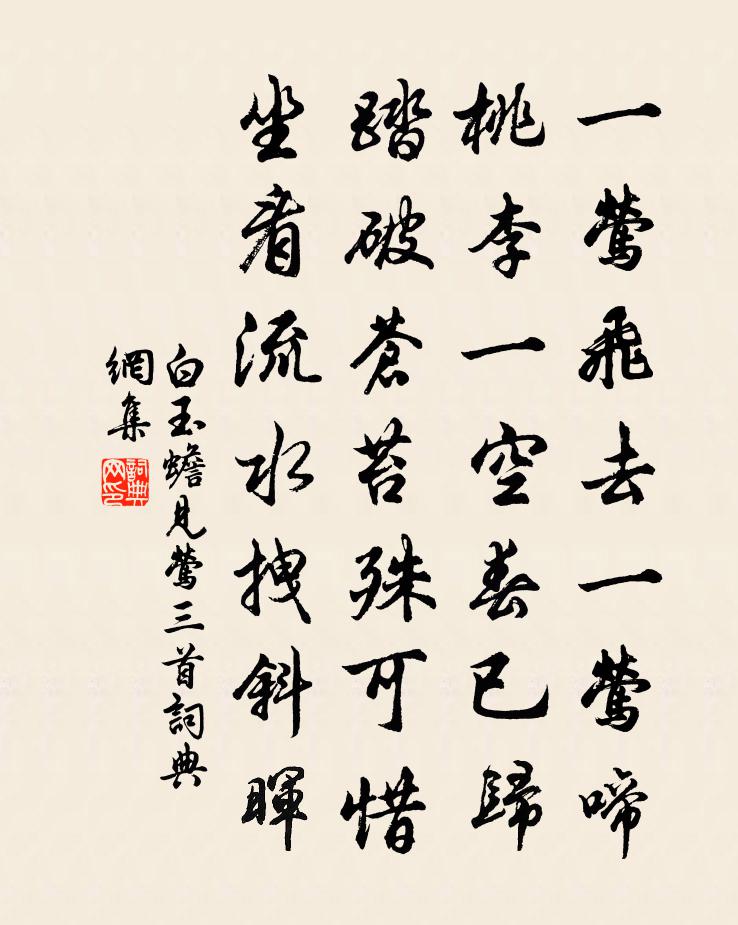 一鶯飛去一鶯啼
桃李一空春已歸
踏破蒼苔殊可惜
坐看流水拽斜暉
白玉蟾見鶯三首詞典
網集
詞典网印